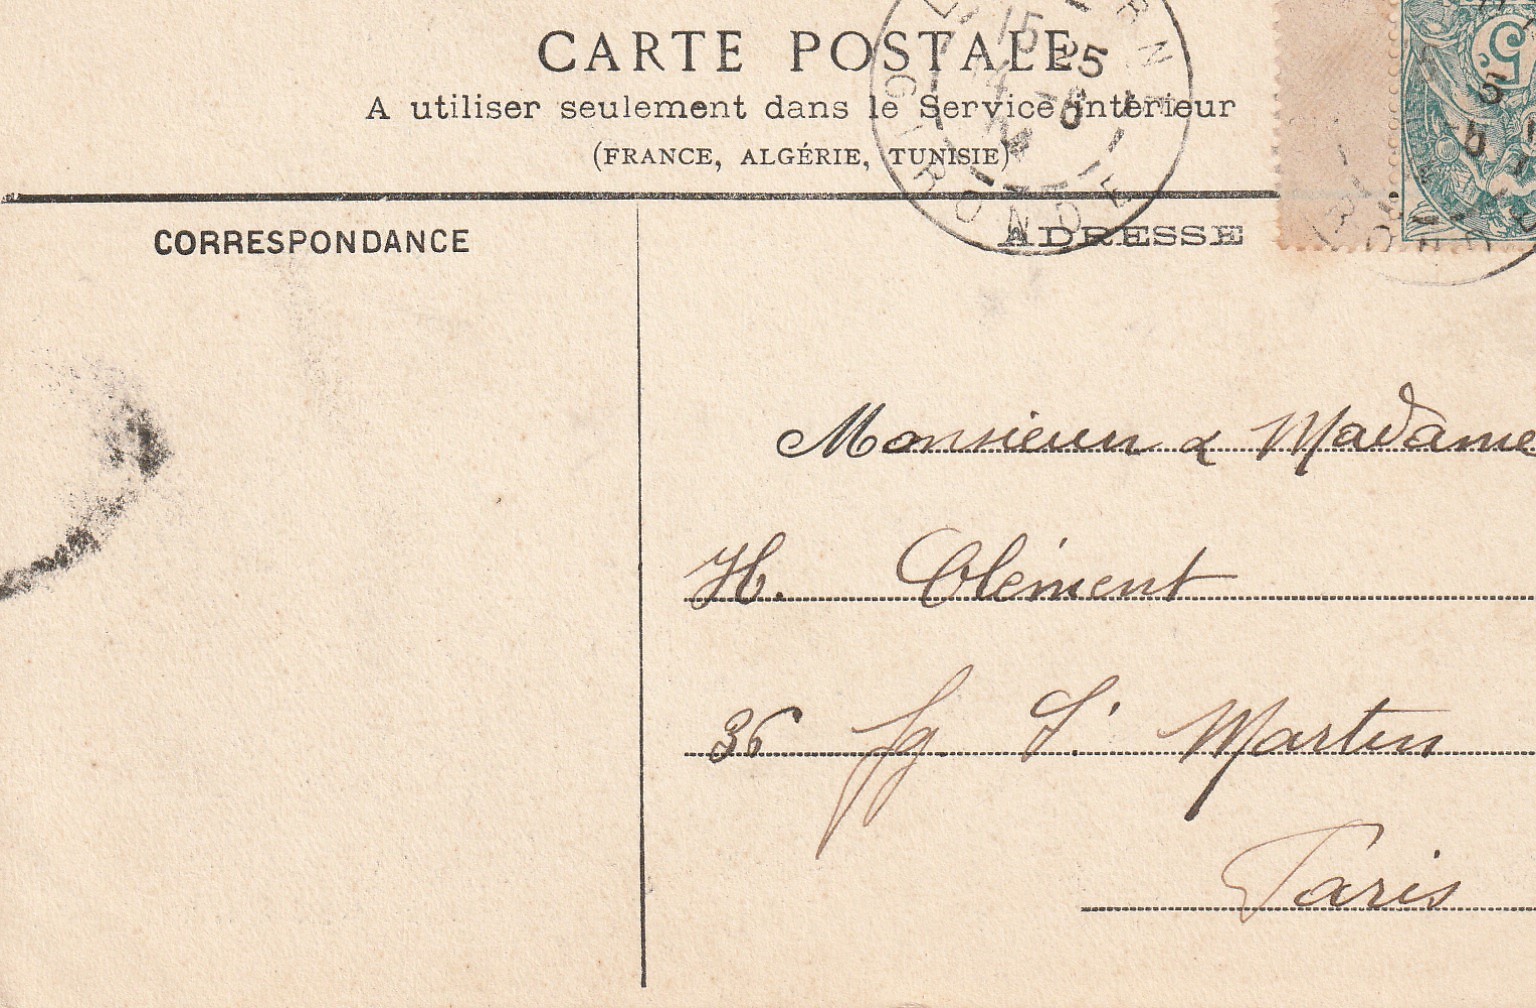 CARTE POSTALE
A utiliser seulement dans le Service intérieur
(FRANCE, ALGÉRIE, TUNISIE)
15 25
-6
GIRONDE
5
CORRESPONDANCE
ADRESSE
Monsieur & Madame
H. Clément
36 fg. St Martin
Paris